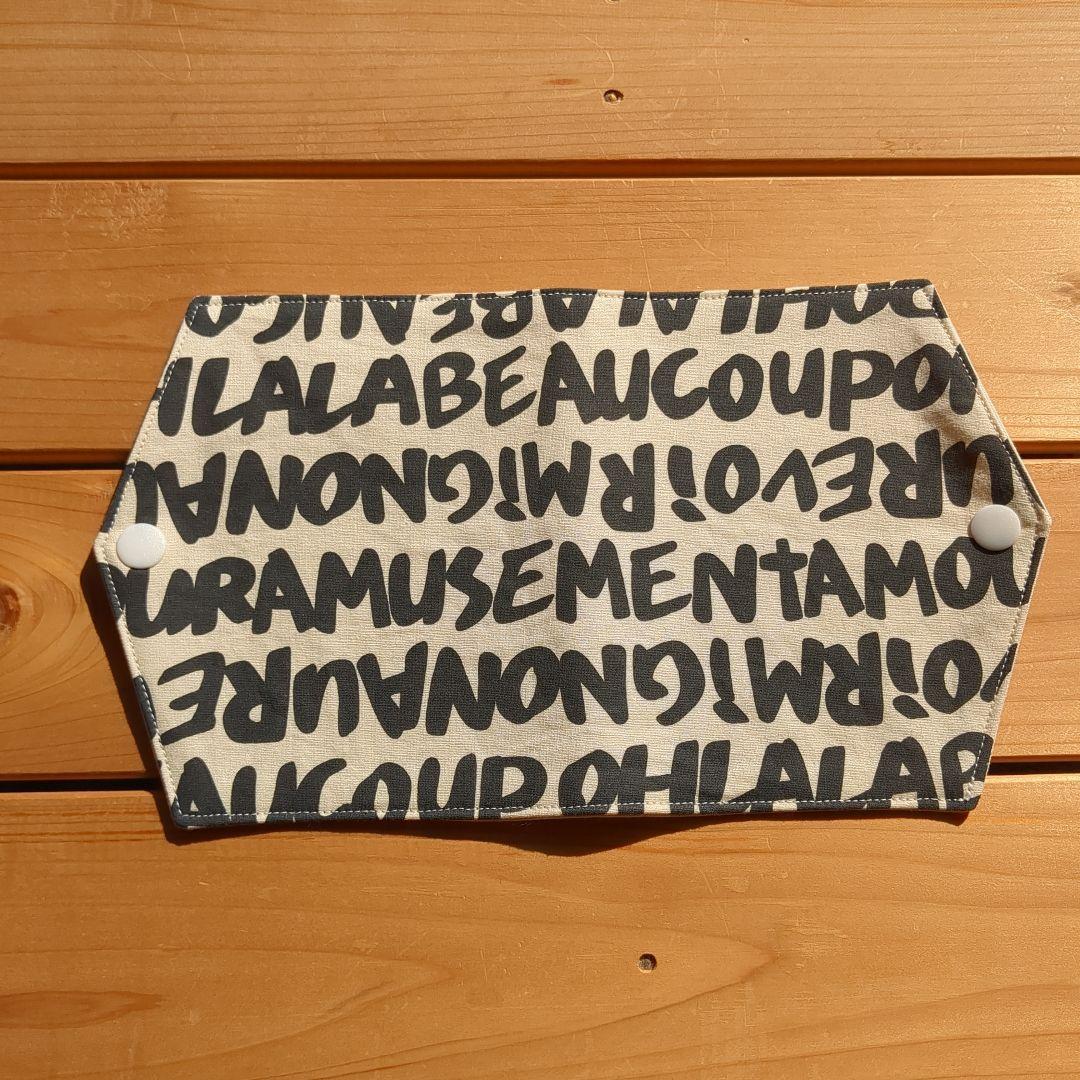 OHLALABEAUCO
LALABEAUCOuPO
UREVOiRMiGNONAU
URAMUSEMENtAMOU
OiRMiGNONAuRE
AUCOUPOHLALAB